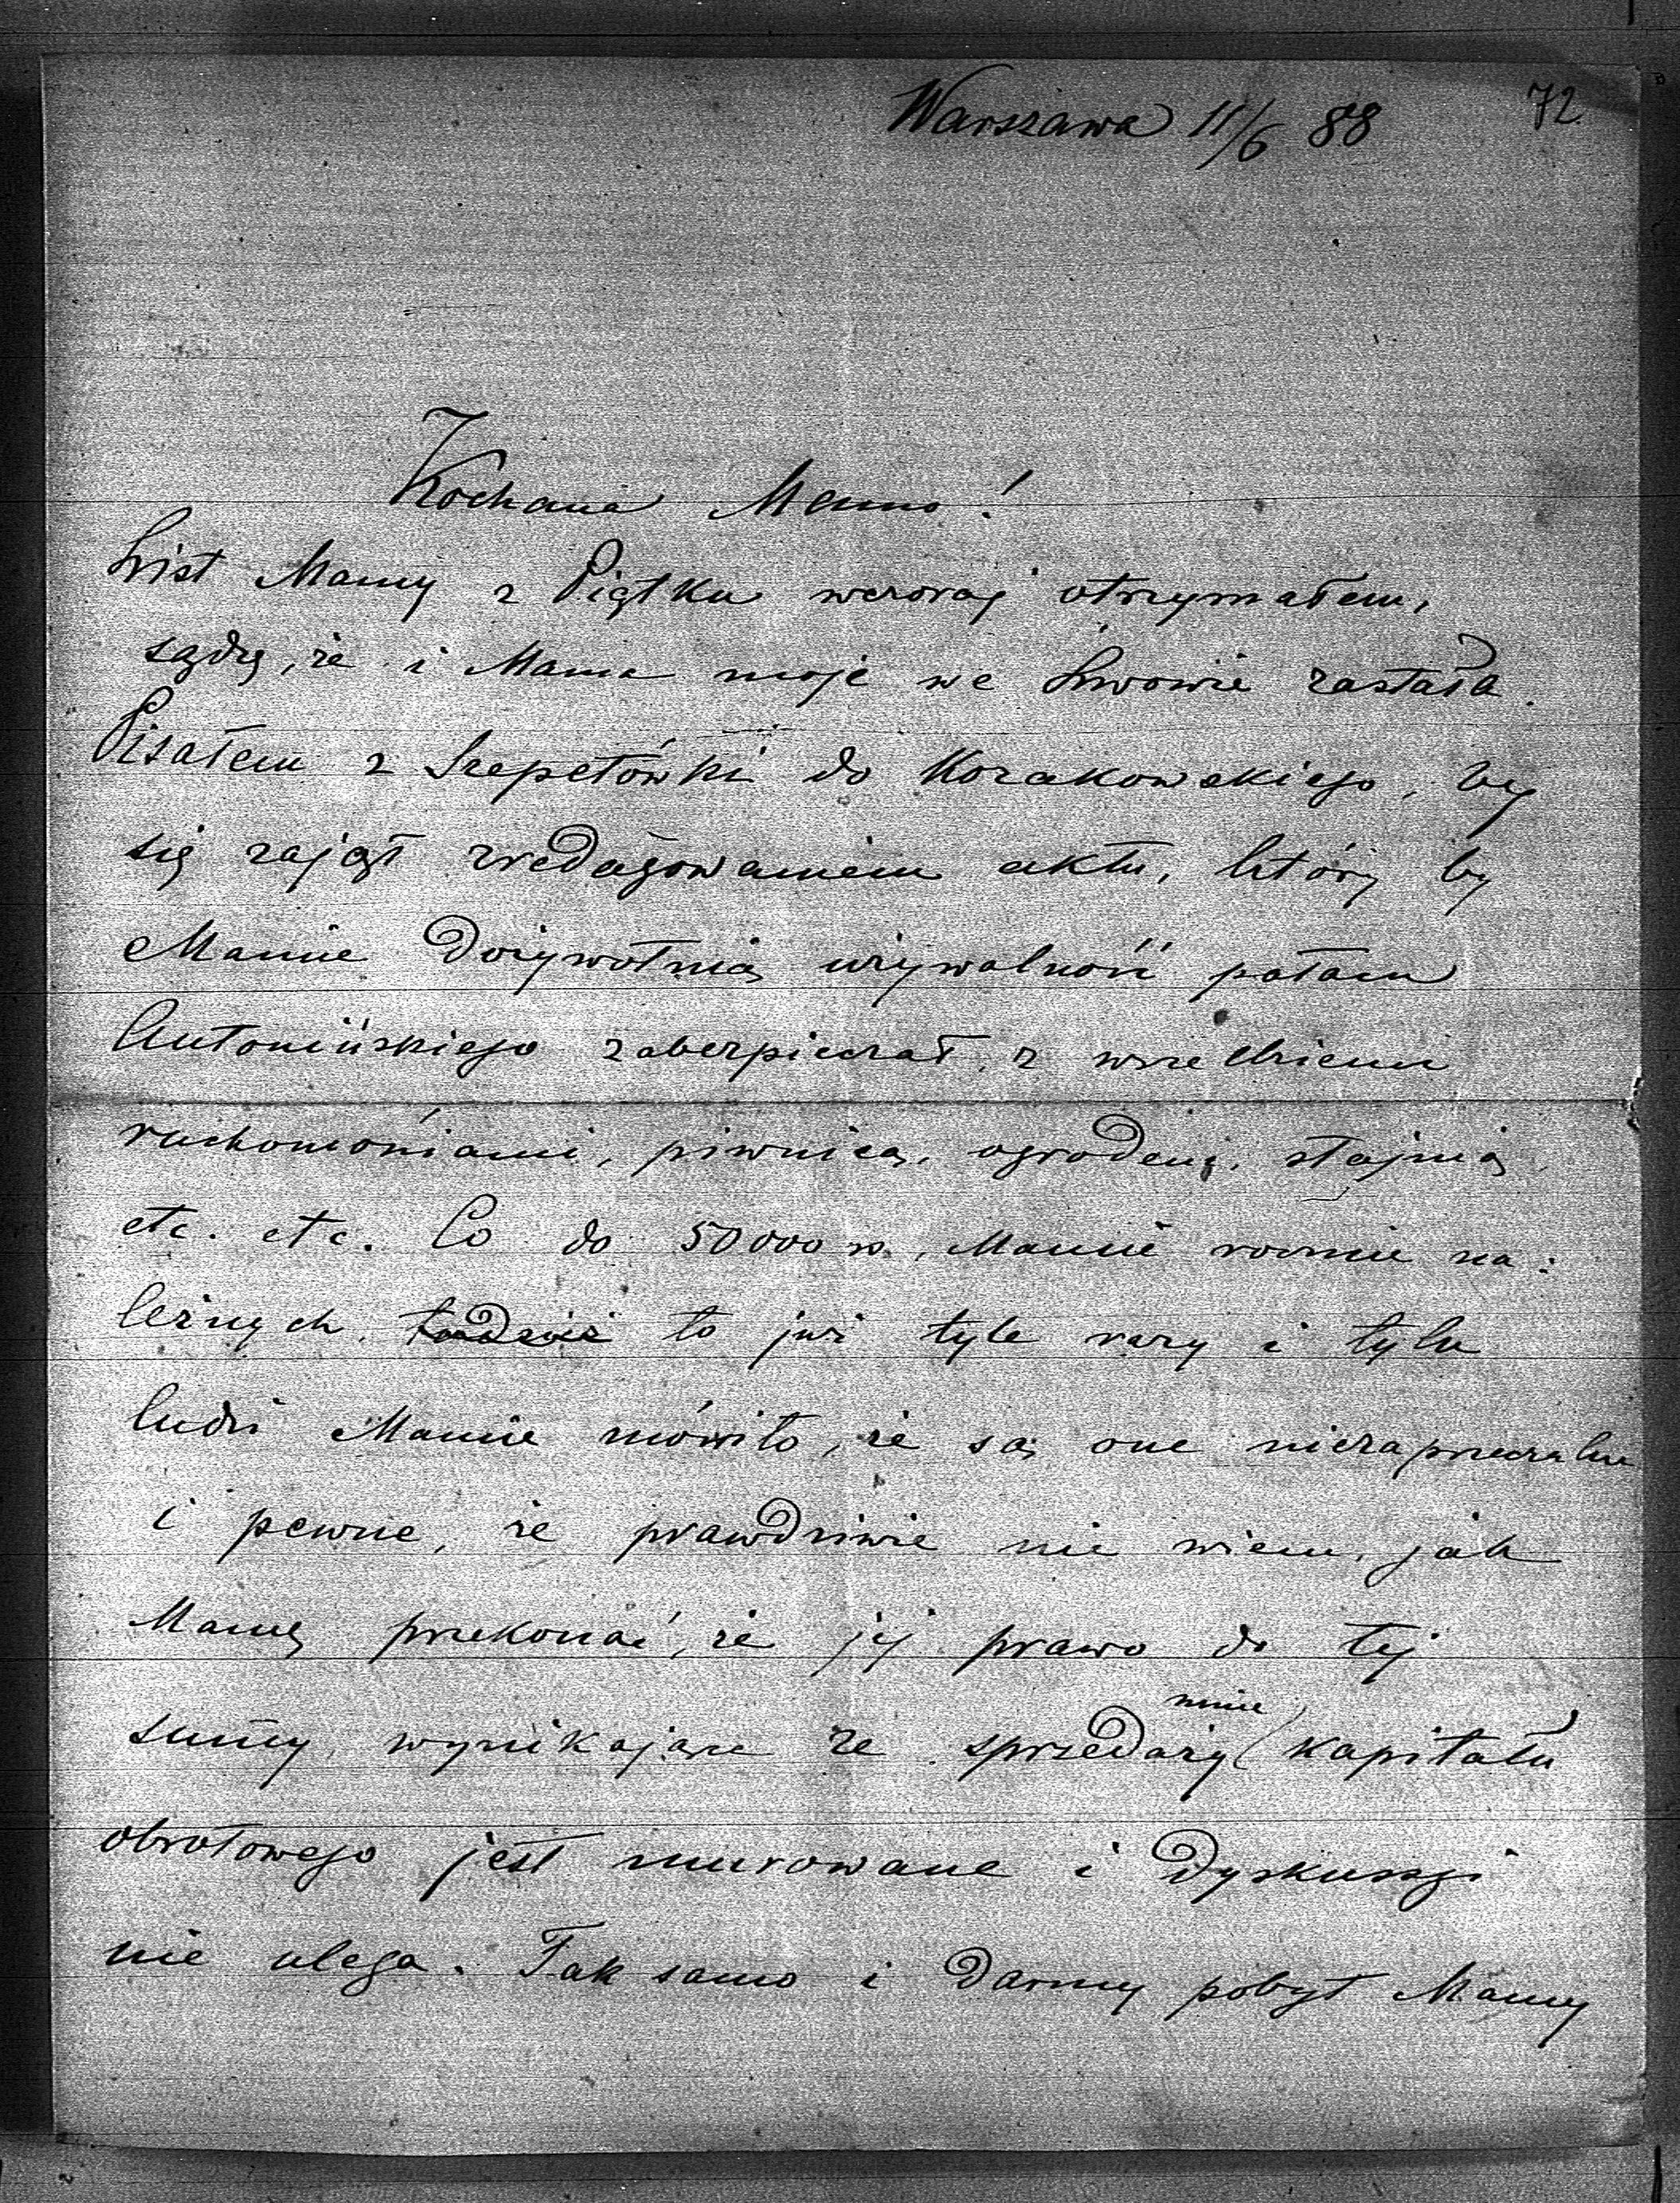 Warszawa 11/6 88
72
Kochana Mamo!
List Mamy z Piątku wczoraj otrzymałem,
sądzę, że i Mama moje we Lwowie zastała.
Pisałem z Szepetówki do Kozakowskiego, by
się zajął zredagowaniem aktu, który by
Mamie dożywotnią używalność pałacu
Antonińskiego zabezpieczał, z wszelkiemi
ruchomościami, piwnicą, ogrodem, stajnią,
etc. etc. Co do 50000 rs. Mamie rocznie na:
leżnych, to już tyle razy i tylu
ludzi Mamie mówiło, że są one niezaprzeczalne
i pewne, że prawdziwie nie wiem, jak
Mamę przekonać, że jej prawo do tej
sumy, wynikające ze sprzedaży mnie kapitału
obrotowego jest murowane i dyskussyi
nie ulega. Tak samo i darmy pobyt Mamy